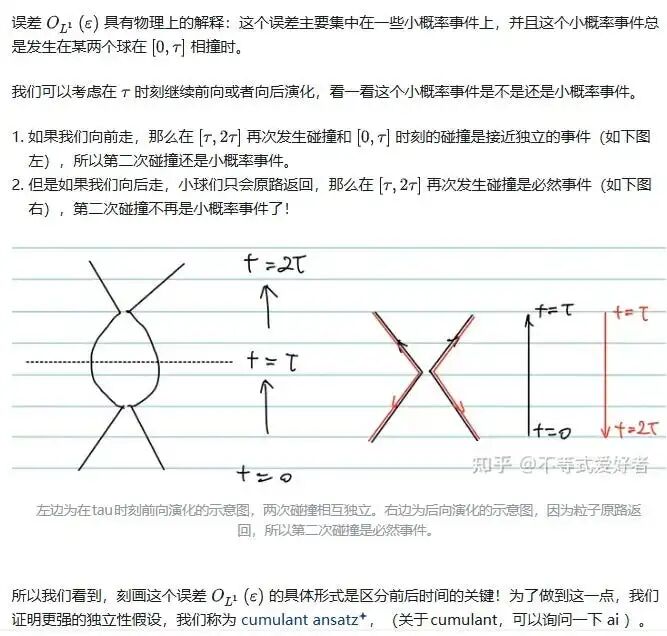 误差 O_{L¹}(ε) 具有物理上的解释：这个误差主要集中在一些小概率事件上，并且这个小概率事件总
是发生在某两个球在 [0, τ] 相撞时。
我们可以考虑在 τ 时刻继续前向或者向后演化，看一看这个小概率事件是不是还是小概率事件。
1. 如果我们向前走，那么在 [τ, 2τ] 再次发生碰撞和 [0, τ] 时刻的碰撞是接近独立的事件（如下图
左），所以第二次碰撞还是小概率事件。
2. 但是如果我们向后走，小球们只会原路返回，那么在 [τ, 2τ] 再次发生碰撞是必然事件（如下图
右），第二次碰撞不再是小概率事件了！
t=2τ
t=τ
t=0
t=τ
t=0
t=τ
t=2τ
知乎 @不等式爱好者
左边为在tau时刻前向演化的示意图，两次碰撞相互独立。右边为后向演化的示意图，因为粒子原路返
回，所以第二次碰撞是必然事件。
所以我们看到，刻画这个误差 O_{L¹}(ε) 的具体形式是区分前后时间的关键！为了做到这一点，我们
证明更强的独立性假设，我们称为 cumulant ansatz，（关于cumulant，可以询问一下 ai ）。